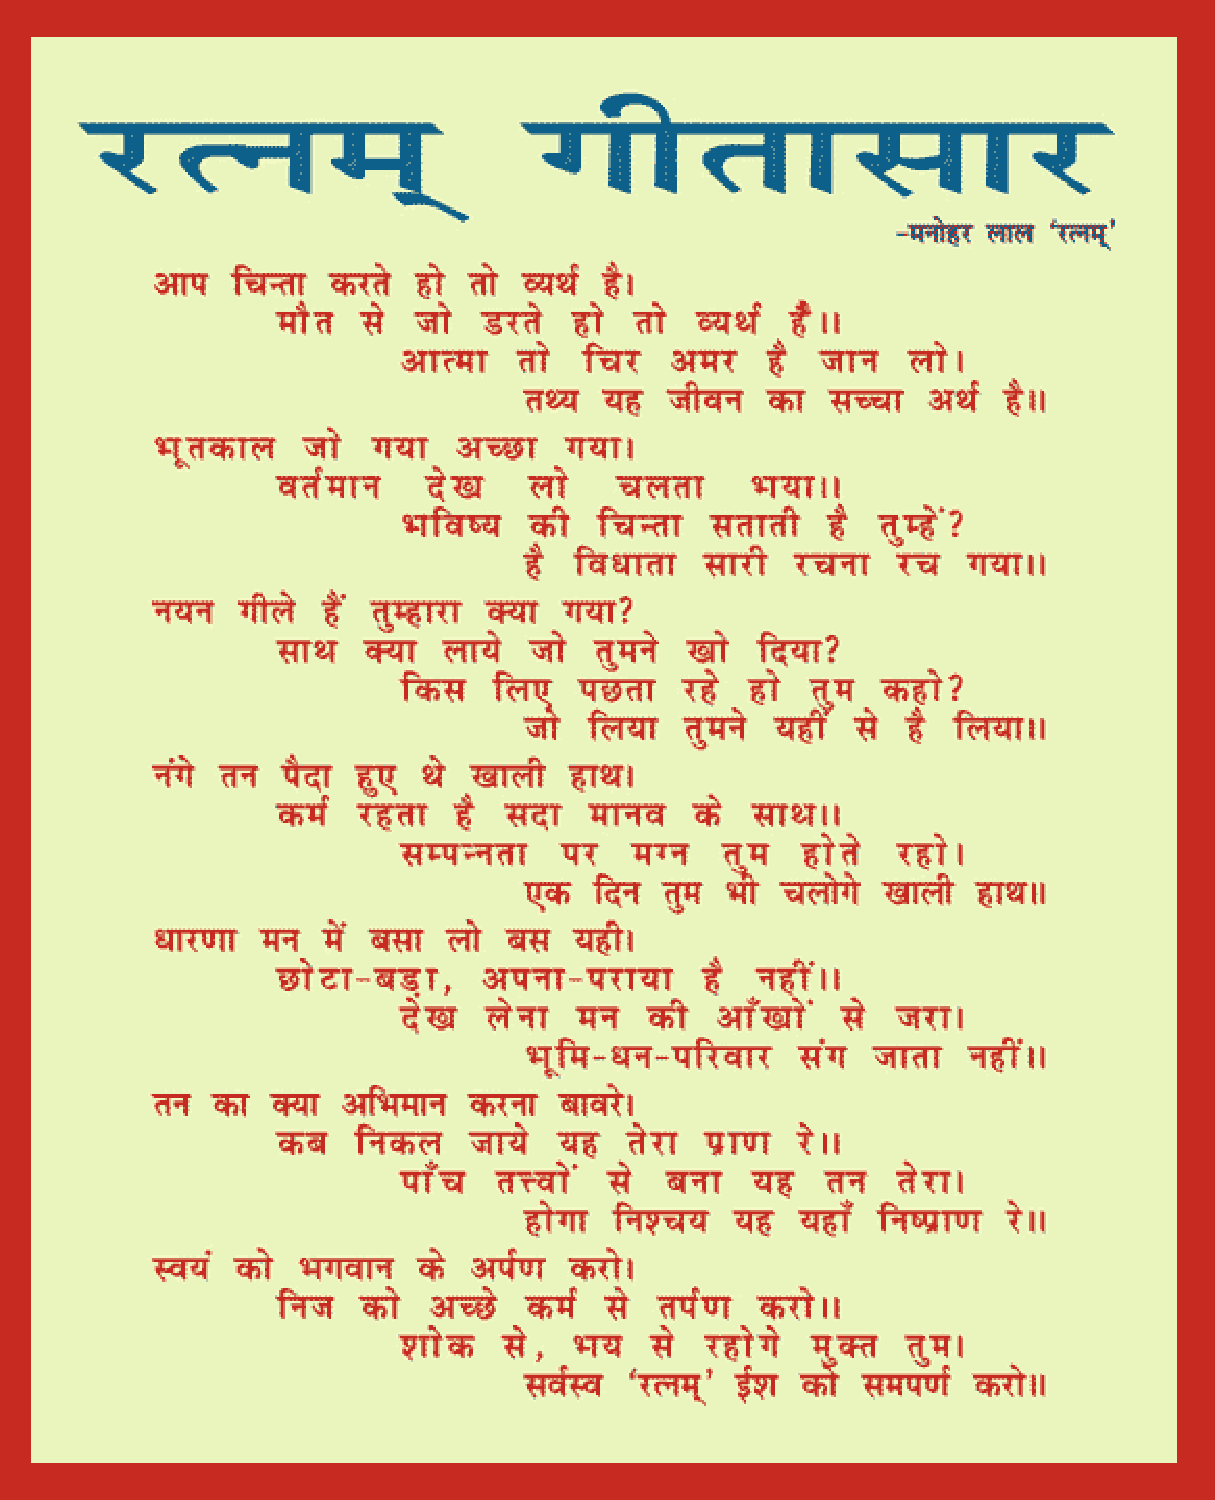 रत्नम् गीतासार
-मनोहर लाल 'रत्नम्'
आप चिन्ता करते हो तो व्यर्थ है।
मौत से जो डरते हो तो व्यर्थ है।।
आत्मा तो चिर अमर है जान लो।
तथ्य यह जीवन का सच्चा अर्थ है॥
भूतकाल जो गया अच्छा गया।
वर्तमान देख लो चलता भया।।
भविष्य की चिन्ता सताती है तुम्हें?
है विधाता सारी रचना रच गया॥
नयन गीले हैं तुम्हारा क्या गया?
साथ क्या लाये जो तुमने खो दिया?
किस लिए पछता रहे हो तुम कहो?
जो लिया तुमने यहीं से है लिया॥
नंगे तन पैदा हुए थे खाली हाथ।
कर्म रहता है सदा मानव के साथ।।
सम्पन्नता पर मग्न तुम होते रहो।
एक दिन तुम भी चलोगे खाली हाथ॥
धारणा मन में बसा लो बस यही।
छोटा-बड़ा, अपना-पराया है नहीं।।
देख लेना मन की आँखों से जरा।
भूमि-धन-परिवार संग जाता नहीं॥
तन का क्या अभिमान करना बावरे।
कब निकल जाये यह तेरा प्राण रे।।
पाँच तत्त्वों से बना यह तन तेरा।
होगा निश्चय यह यहाँ निष्प्राण रे॥
स्वयं को भगवान के अर्पण करो।
निज को अच्छे कर्म से तर्पण करो।।
शोक से, भय से रहोगे मुक्त तुम।
सर्वस्व 'रत्नम्' ईश को समपर्ण करो॥